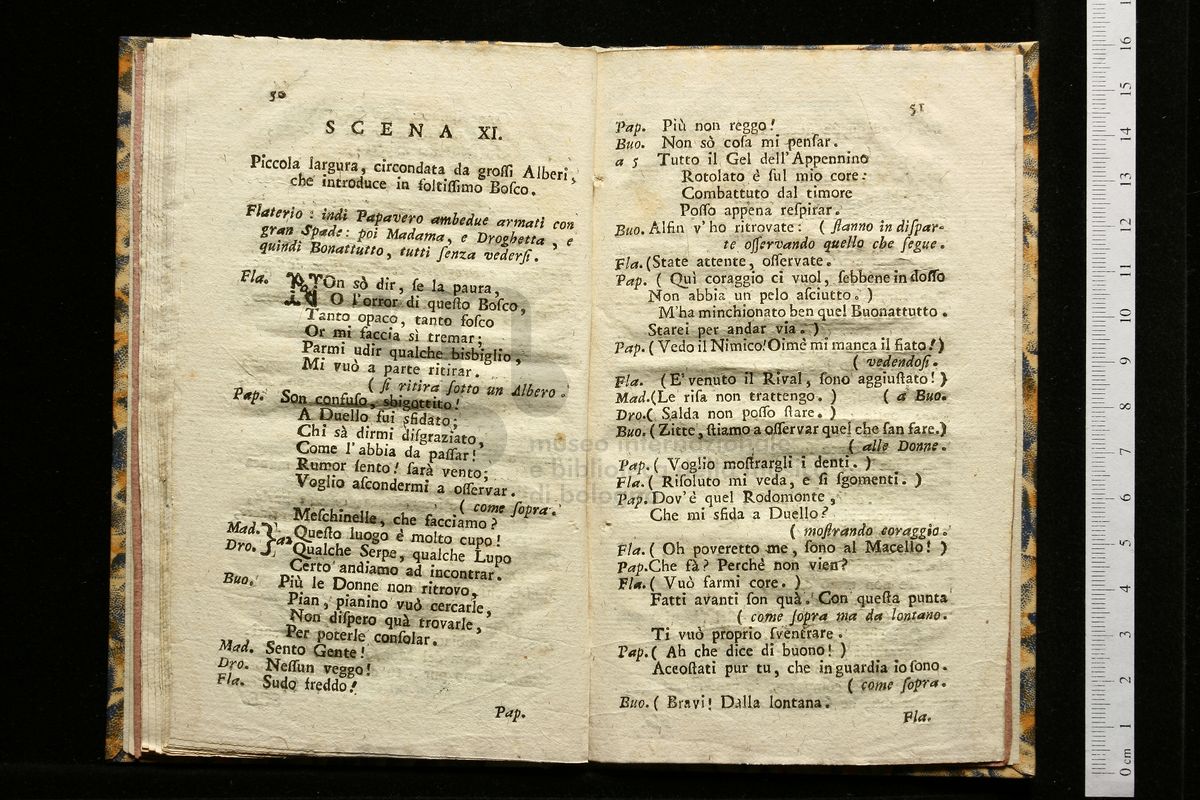 50
SCENA XI.
Piccola largura, circondata da grossi Alberi,
che introduce in foltissimo Bosco.
Flaterio: indi Papavero ambedue armati con
gran Spade: poi Madama, e Droghetta, e
quindi Bonattutto, tutti senza vedersi.
Fla. NOn sò dir, se la paura,
O l'orror di questo Bosco,
Tanto opaco, tanto fosco
Or mi faccia sì tremar;
Parmi udir qualche bisbiglio,
Mi vuò a parte ritirar.
( si ritira sotto un Albero.
Pap. Son confuso, sbigottito!
A Duello fui sfidato;
Chi sà dirmi disgraziato,
Come l'abbia da passar!
Rumor sento! sarà vento;
Voglio ascondermi a osservar.
( come sopra.
Meschinelle, che facciamo?
Mad. } a2 Questo luogo è molto cupo!
Dro. } Qualche Serpe, qualche Lupo
Certo andiamo ad incontrar.
Buo. Più le Donne non ritrovo,
Pian, pianino vuò cercarle,
Non dispero quà trovarle,
Per poterle consolar.
Mad. Sento Gente!
Dro. Nessun veggo!
Fla. Sudo freddo!
Pap.
51
Pap. Più non reggo!
Buo. Non sò cosa mi pensar.
a 5 Tutto il Gel dell'Appennino
Rotolato è sul mio core:
Combattuto dal timore
Posso appena respirar.
Buo. Alfin v'ho ritrovate: ( stanno in dispar-
te osservando quello che segue.
Fla. (State attente, osservate.
Pap. ( Quì coraggio ci vuol, sebbene in dosso
Non abbia un pelo asciutto. )
M'ha minchionato ben quel Buonattutto.
Starei per andar via. )
Pap. ( Vedo il Nimico! Oimè mi manca il fiato! )
( vedendosi.
Fla. (E' venuto il Rival, sono aggiustato! )
Mad. (Le risa non trattengo. ) ( a Buo.
Dro. ( Salda non posso stare. )
Buo. ( Zitte, stiamo a osservar quel che san fare.)
( alle Donne.
Pap. ( Voglio mostrargli i denti. )
Fla. ( Risoluto mi veda, e si sgomenti. )
Pap. Dov'è quel Rodomonte,
Che mi sfida a Duello?
( mostrando coraggio.
Fla. ( Oh poveretto me, sono al Macello! )
Pap. Che fà? Perchè non vien?
Fla. ( Vuò farmi core. )
Fatti avanti son quà. Con questa punta
( come sopra ma da lontano.
Ti vuò proprio sventrare.
Pap. ( Ah che dice di buono! )
Aceostati pur tu, che in guardia io sono.
( come sopra.
Buo. ( Bravi! Dalla lontana.
Fla.
museo internazionale
e biblioteca della musica
di bologna